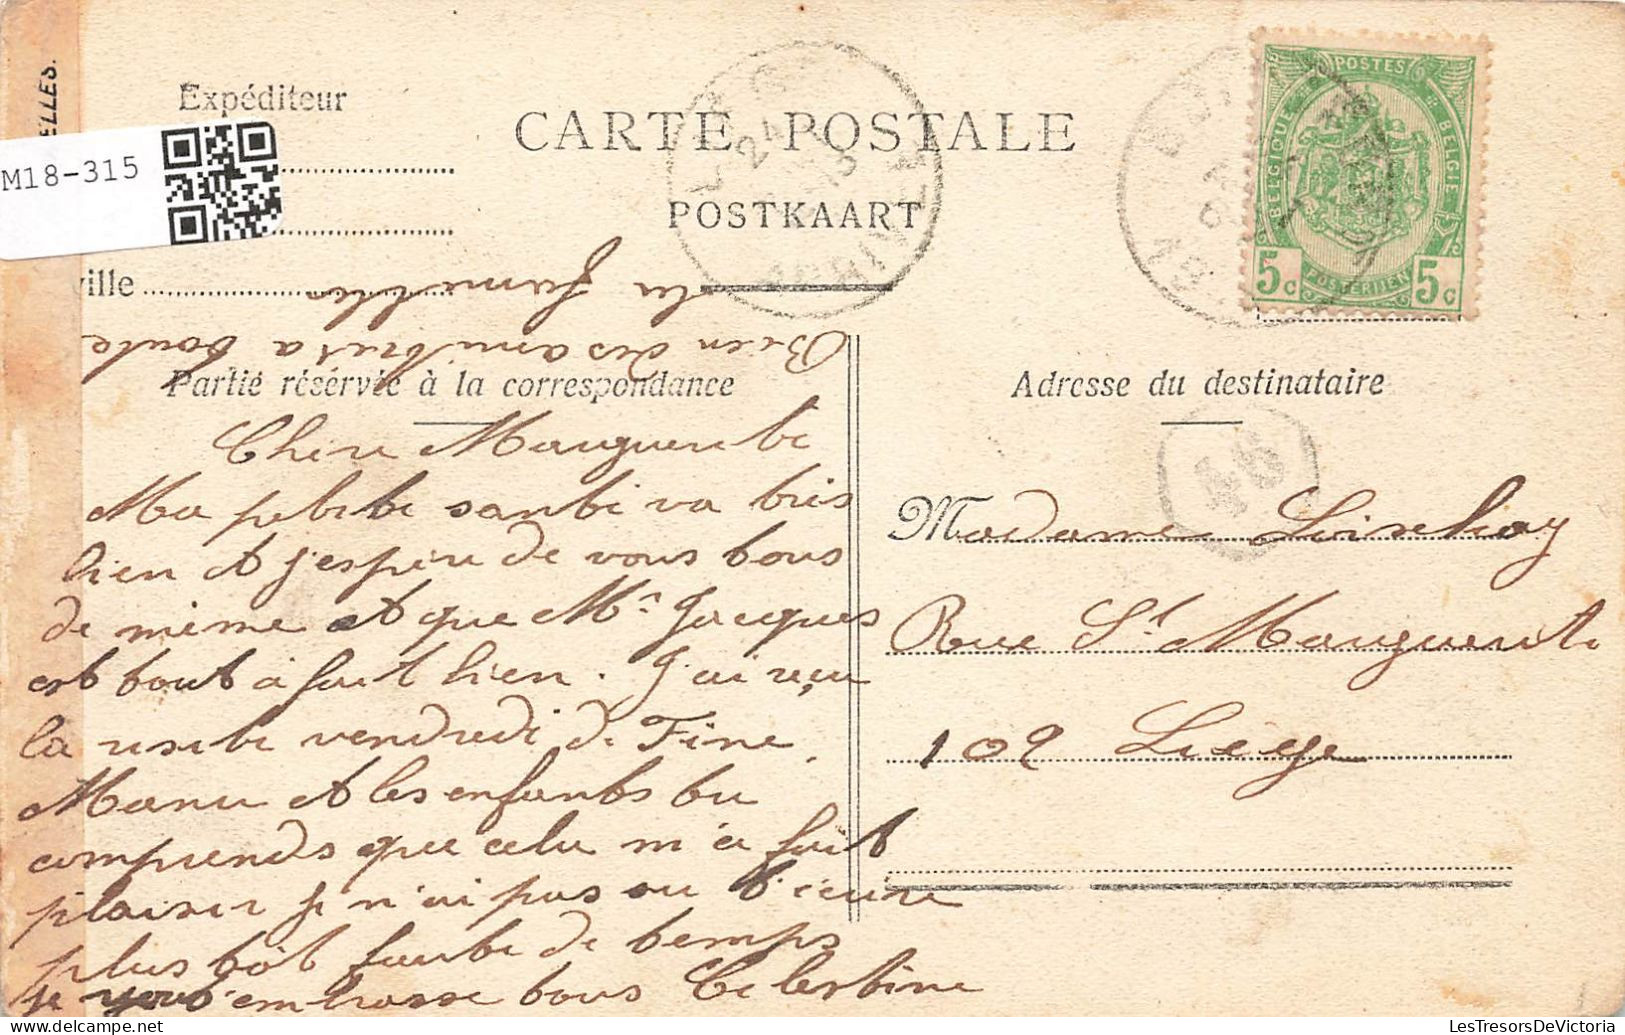 ELLES.
M18-315
Expéditeur
CARTE POSTALE
POSTKAART
ville
POSTES
BELGIQUE
BELGIE
5c
POSTERIJEN
5c
Bien des amitiés a toute
la famille
Partie réservée à la correspondance
Adresse du destinataire
Chère Marguerite
Ma petite santé va très
bien et j'espère de vous tous
de même et que Mr Jacques
est tout à fait bien. J'ai reçu
la visite vendredi de Fine
et les enfants tu
comprends que cela m'a fait
plaisir je n'ai pas su t'écrire
plus tôt faute de temps
je vous embrasse tous Celestine
46
Madame
Rue St Marguerite
109 Liège
LesTresorsDeVictoria